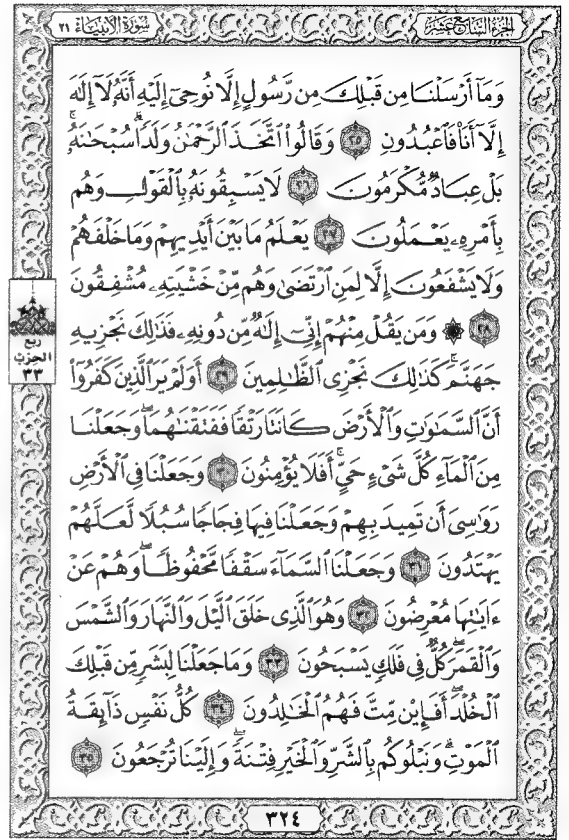 الجزء السابع عشر
سورة الأنبياء ٢١
وَمَآ أَرْسَلْنَا مِن قَبْلِكَ مِن رَّسُولٍ إِلَّا نُوحِىٓ إِلَيْهِ أَنَّهُۥ لَآ إِلَٰهَ
إِلَّآ أَنَا۠ فَٱعْبُدُونِ ٢٥ وَقَالُوا۟ ٱتَّخَذَ ٱلرَّحْمَٰنُ وَلَدًا ۗ سُبْحَٰنَهُۥ ۚ
بَلْ عِبَادٌ مُّكْرَمُونَ ٢٦ لَا يَسْبِقُونَهُۥ بِٱلْقَوْلِ وَهُم
بِأَمْرِهِۦ يَعْمَلُونَ ٢٧ يَعْلَمُ مَا بَيْنَ أَيْدِيهِمْ وَمَا خَلْفَهُمْ
وَلَا يَشْفَعُونَ إِلَّا لِمَنِ ٱرْتَضَىٰ وَهُم مِّنْ خَشْيَتِهِۦ مُشْفِقُونَ
٢٨ ۞ وَمَن يَقُلْ مِنْهُمْ إِنِّىٓ إِلَٰهٌ مِّن دُونِهِۦ فَذَٰلِكَ نَجْزِيهِ
جَهَنَّمَ ۚ كَذَٰلِكَ نَجْزِى ٱلظَّٰلِمِينَ ٢٩ أَوَلَمْ يَرَ ٱلَّذِينَ كَفَرُوٓا۟
أَنَّ ٱلسَّمَٰوَٰتِ وَٱلْأَرْضَ كَانَتَا رَتْقًا فَفَتَقْنَٰهُمَا ۖ وَجَعَلْنَا
مِنَ ٱلْمَآءِ كُلَّ شَىْءٍ حَىٍّ ۖ أَفَلَا يُؤْمِنُونَ ٣٠ وَجَعَلْنَا فِى ٱلْأَرْضِ
رَوَٰسِىَ أَن تَمِيدَ بِهِمْ وَجَعَلْنَا فِيهَا فِجَاجًا سُبُلًا لَّعَلَّهُمْ
يَهْتَدُونَ ٣١ وَجَعَلْنَا ٱلسَّمَآءَ سَقْفًا مَّحْفُوظًا ۖ وَهُمْ عَنْ
ءَايَٰتِهَا مُعْرِضُونَ ٣٢ وَهُوَ ٱلَّذِى خَلَقَ ٱلَّيْلَ وَٱلنَّهَارَ وَٱلشَّمْسَ
وَٱلْقَمَرَ ۖ كُلٌّ فِى فَلَكٍ يَسْبَحُونَ ٣٣ وَمَا جَعَلْنَا لِبَشَرٍ مِّن قَبْلِكَ
ٱلْخُلْدَ ۖ أَفَإِي۟ن مِّتَّ فَهُمُ ٱلْخَٰلِدُونَ ٣٤ كُلُّ نَفْسٍ ذَآئِقَةُ
ٱلْمَوْتِ ۗ وَنَبْلُوكُم بِٱلشَّرِّ وَٱلْخَيْرِ فِتْنَةً ۖ وَإِلَيْنَا تُرْجَعُونَ ٣٥
ربع
الحزب
٣٣
٣٢٤